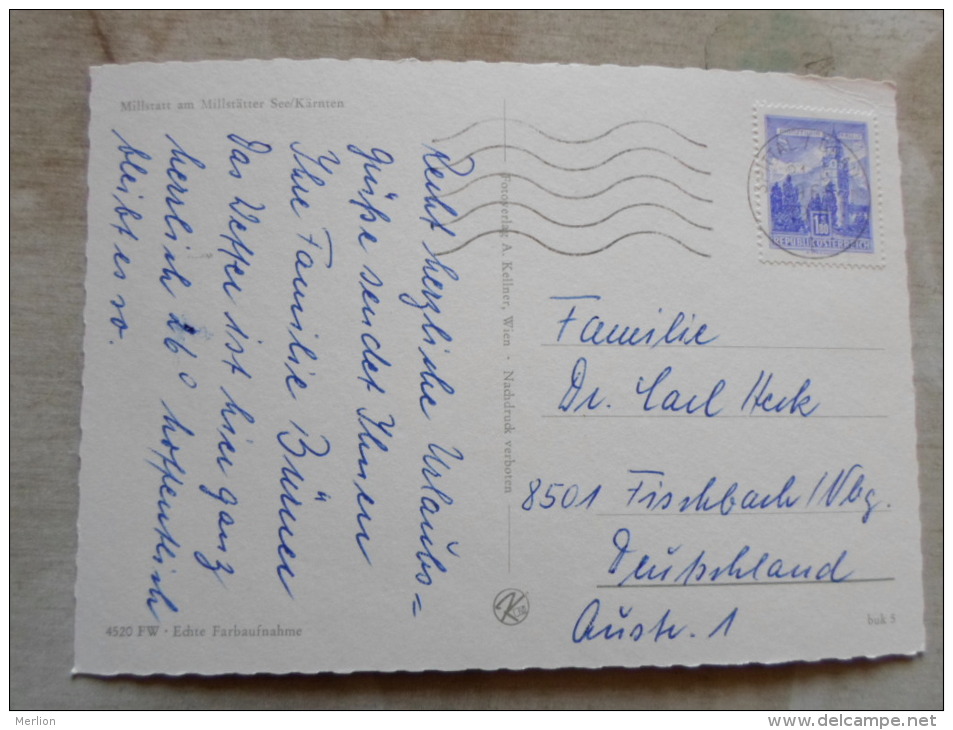 Millstatt am Millstätter See/Kärnten
Recht herzliche Urlaubs=
grüße sendet Ihnen
Ihre Familie
Das Wetter ist hier ganz
herrlich 26° hoffentlich
bleibt es so.
4520 FW · Echte Farbaufnahme
Fotoverlag A. Kellner, Wien · Nachdruck verboten
1.80
REPUBLIK OSTERREICH
Familie
Dr. Carl Heck
8501 Fischbach/Nbg.
Deutschland
Austr. 1
buk 5
Merlion
www.delcampe.net